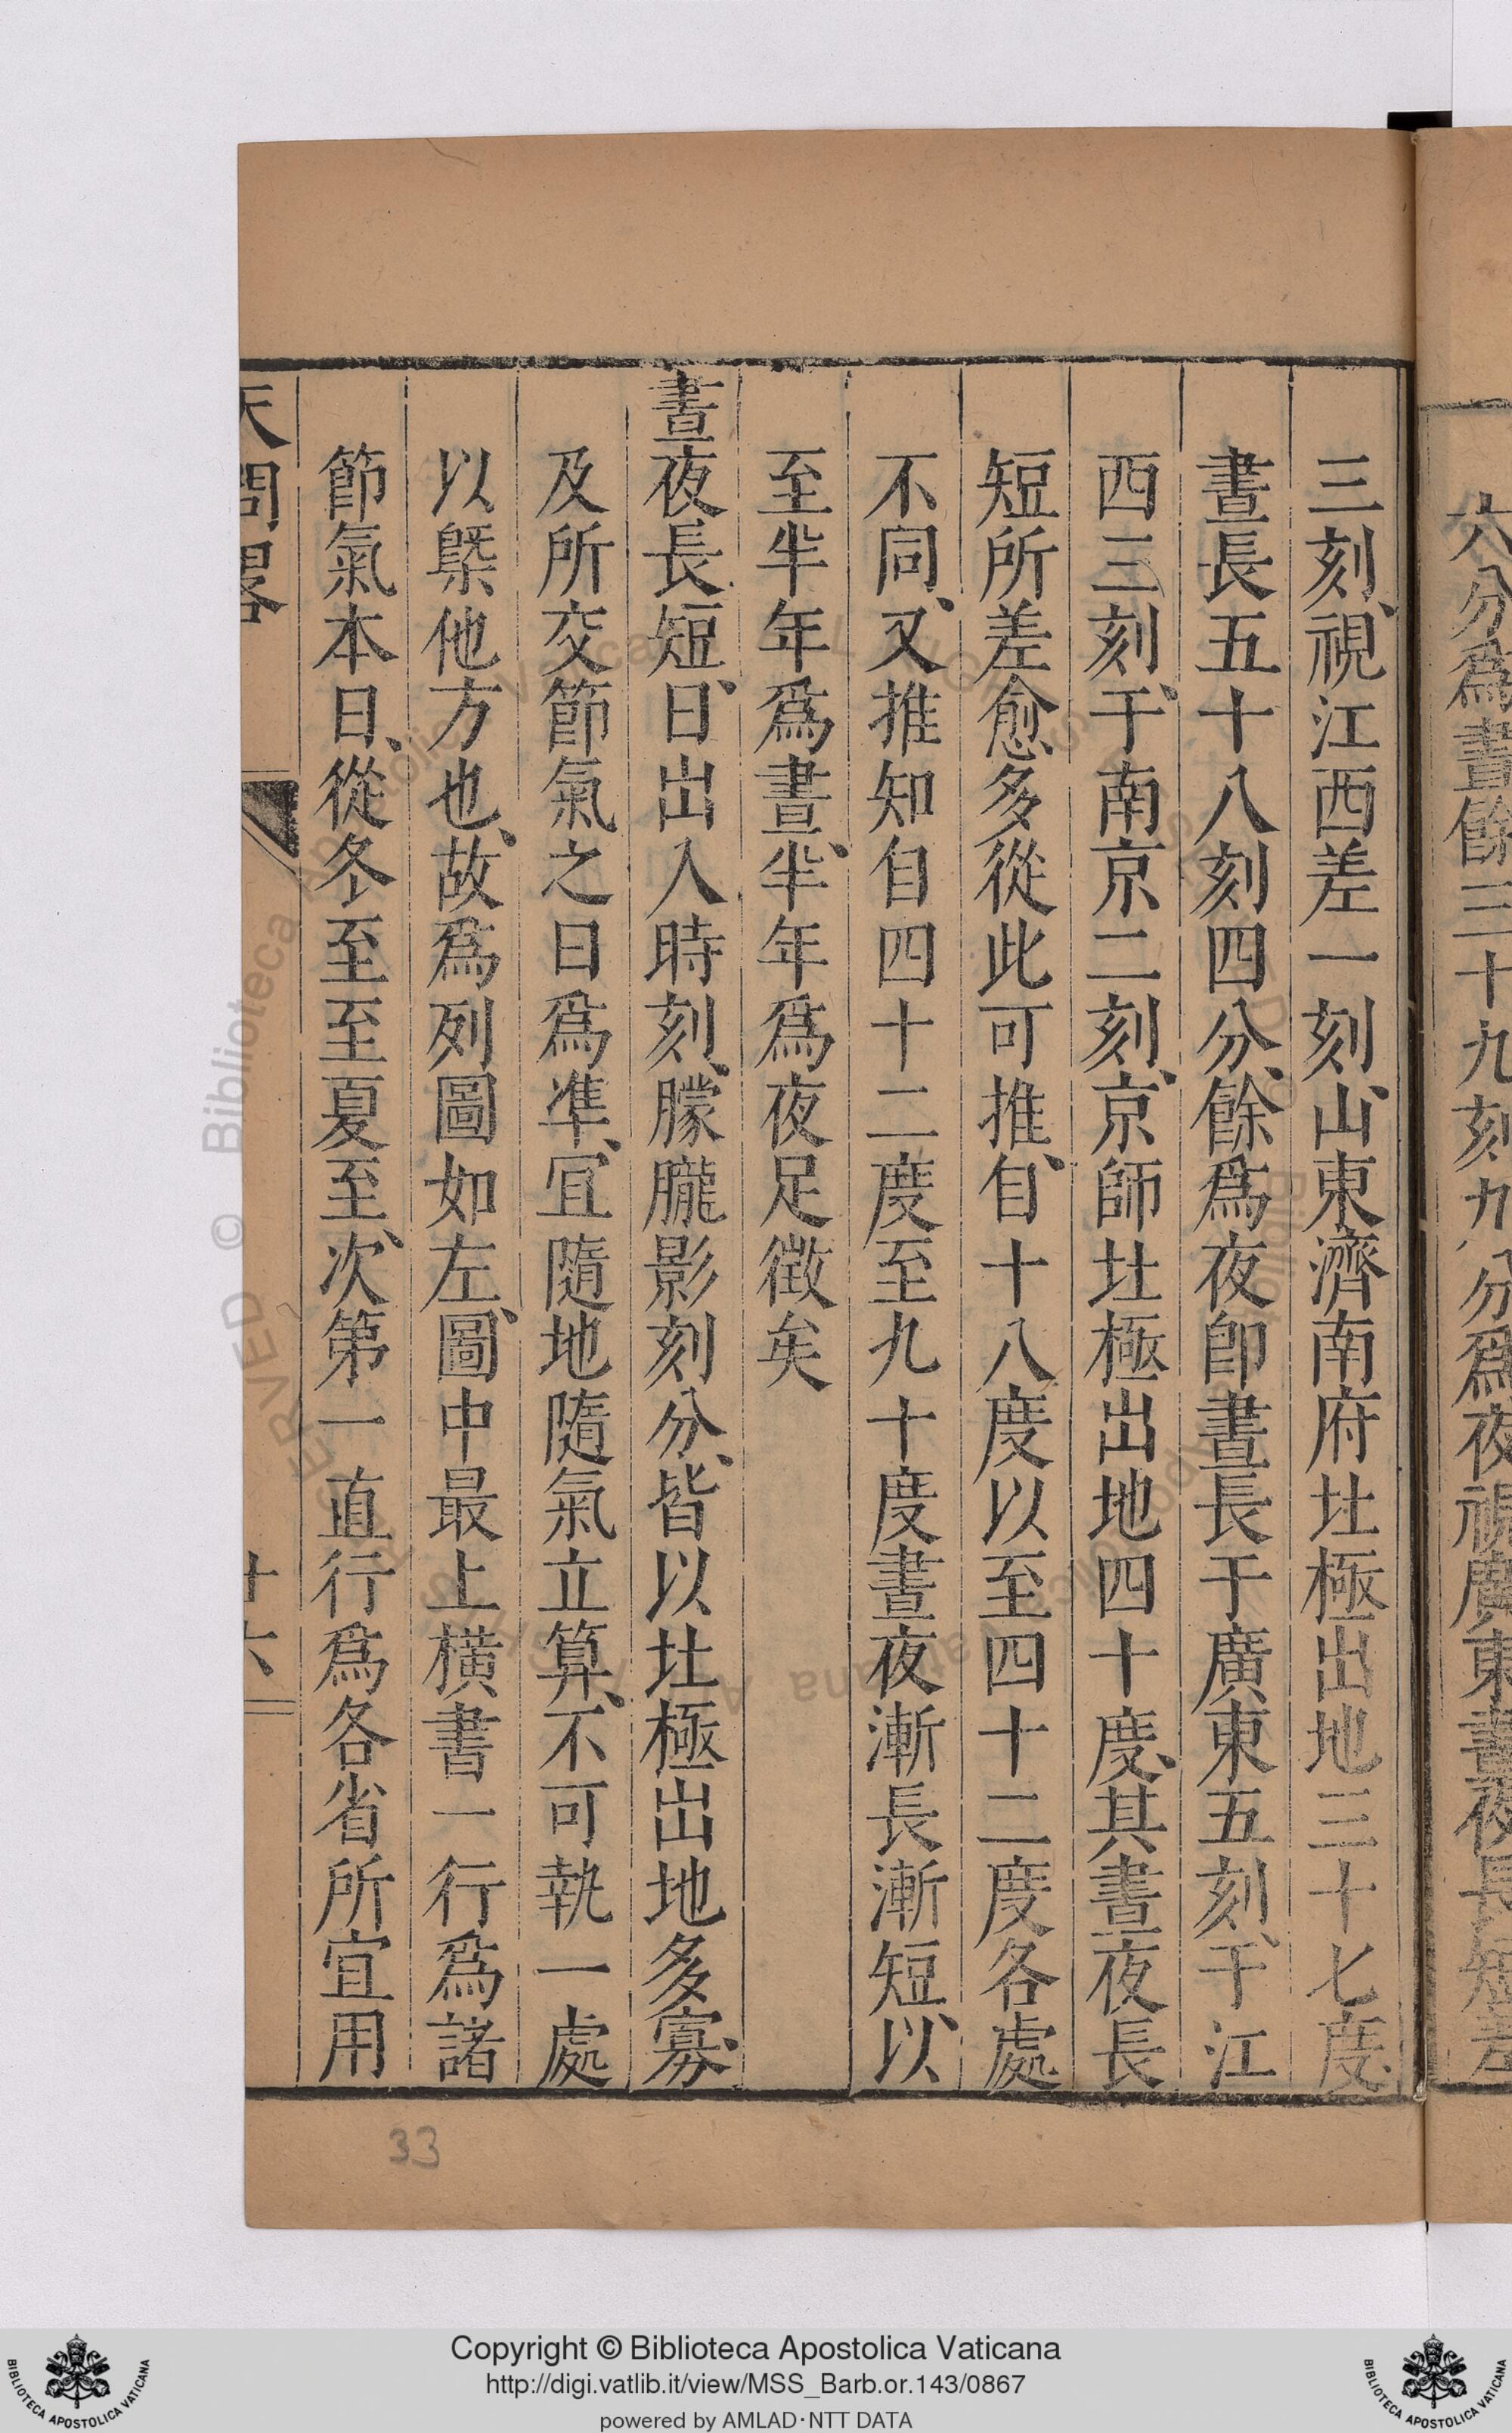 六分爲晝餘三十九刻九分爲夜視廣東晝夜長短差
三刻、視江西差一刻、山東濟南府北極出地三十七度、
晝長五十八刻四分、餘爲夜卽晝長于廣東五刻、于江
西三刻、于南京二刻、京師北極出地四十度、其晝夜長
短所差愈多從此可推、自十八度以至四十二度各處
不同、又推知自四十二度至九十度晝夜漸長漸短、以
至半年爲晝、半年爲夜足徵矣
晝夜長短、日出入時刻、朦朧影刻分、皆以北極出地多寡、
及所交節氣之日爲準、宜隨地隨氣立算、不可執一處
以槩他方也、故爲列圖如左、圖中最上橫書一行爲諸
節氣本日、從冬至至夏至、次第一直行爲各省所宜用
天問畧
十六
33
© Biblioteca Apostolica Vaticana
Copyright © Biblioteca Apostolica Vaticana
http://digi.vatlib.it/view/MSS_Barb.or.143/0867
powered by AMLAD·NTT DATA
BIBLIOTECA APOSTOLICA VATICANA
BIBLIOTECA APOSTOLICA VATICANA